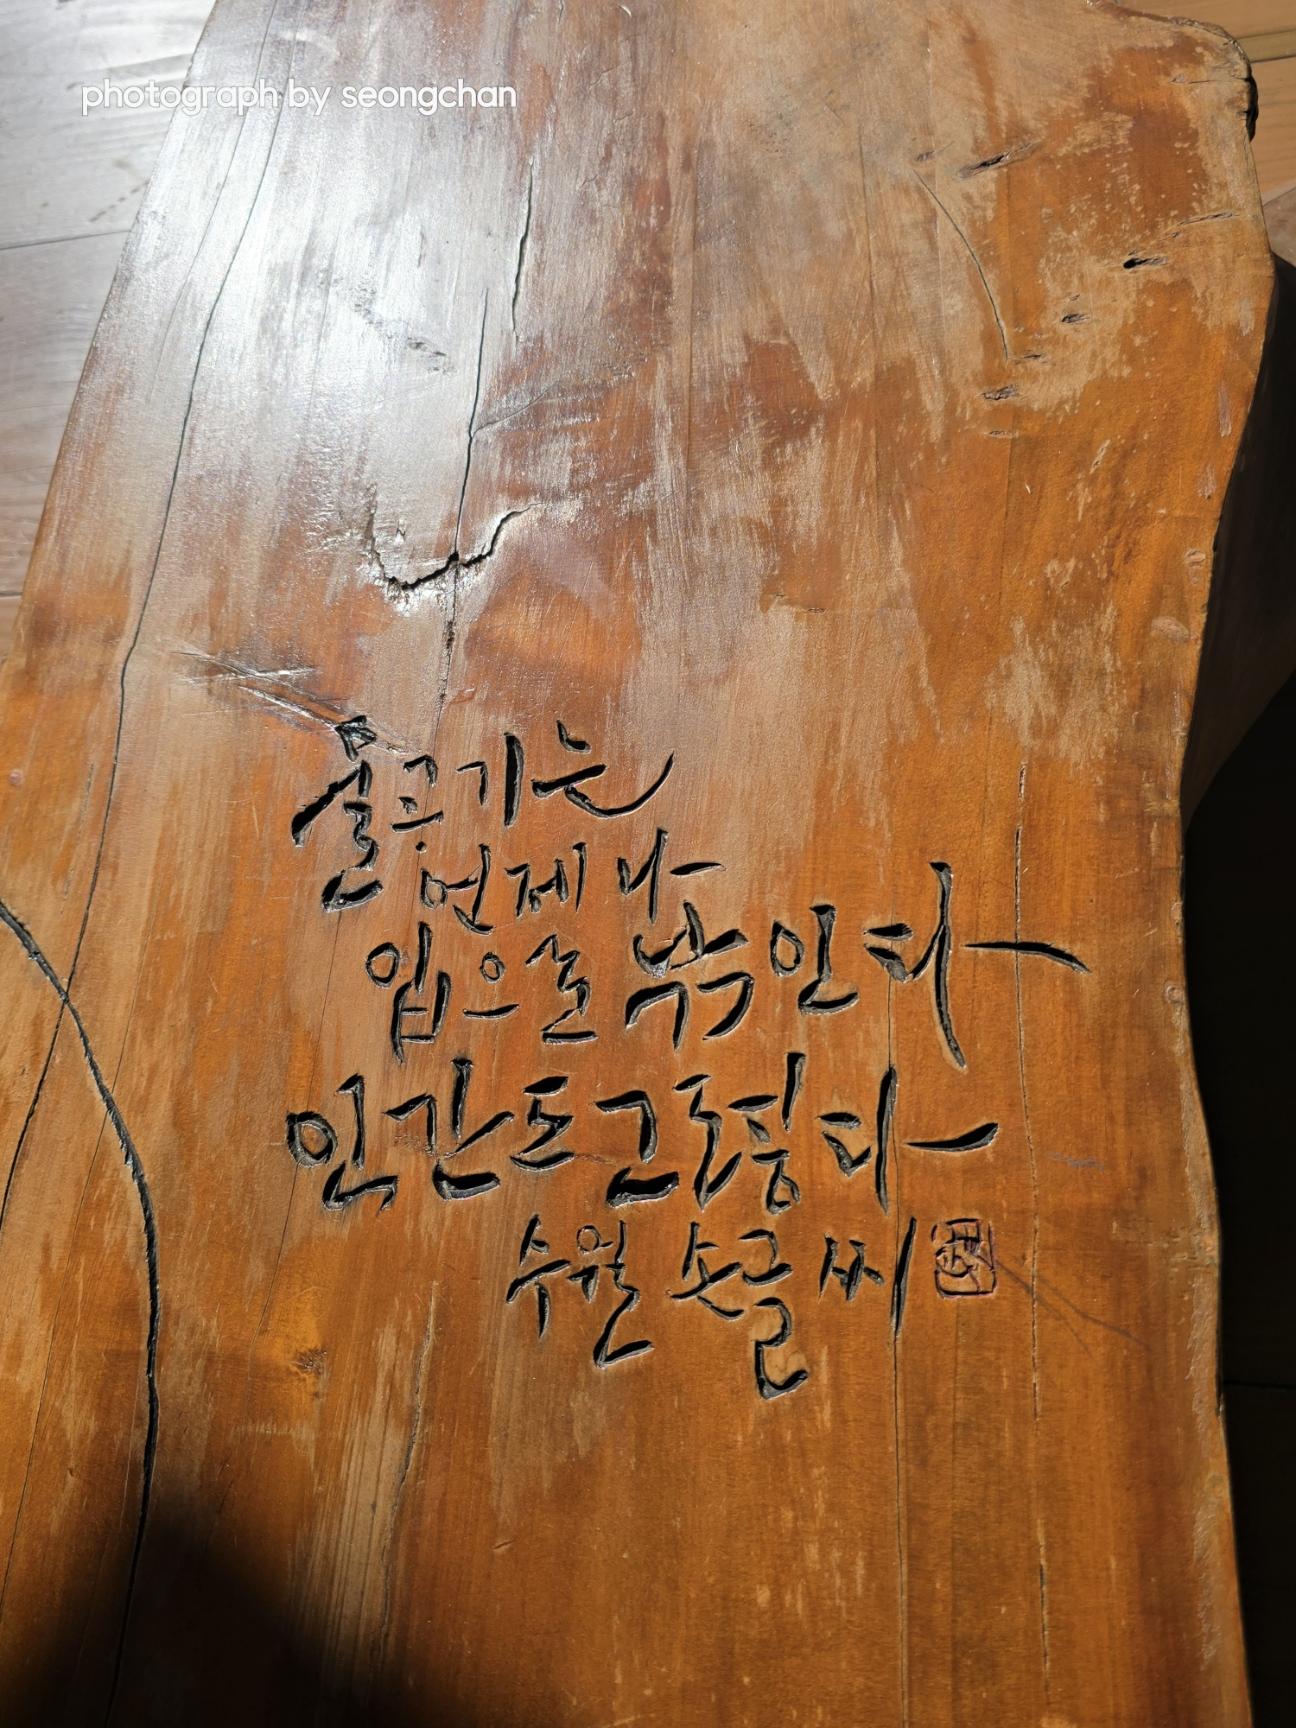 photograph by seongchan
물고기는
언제나
입으로 낚인다
인간도 그렇다
수월 손글씨